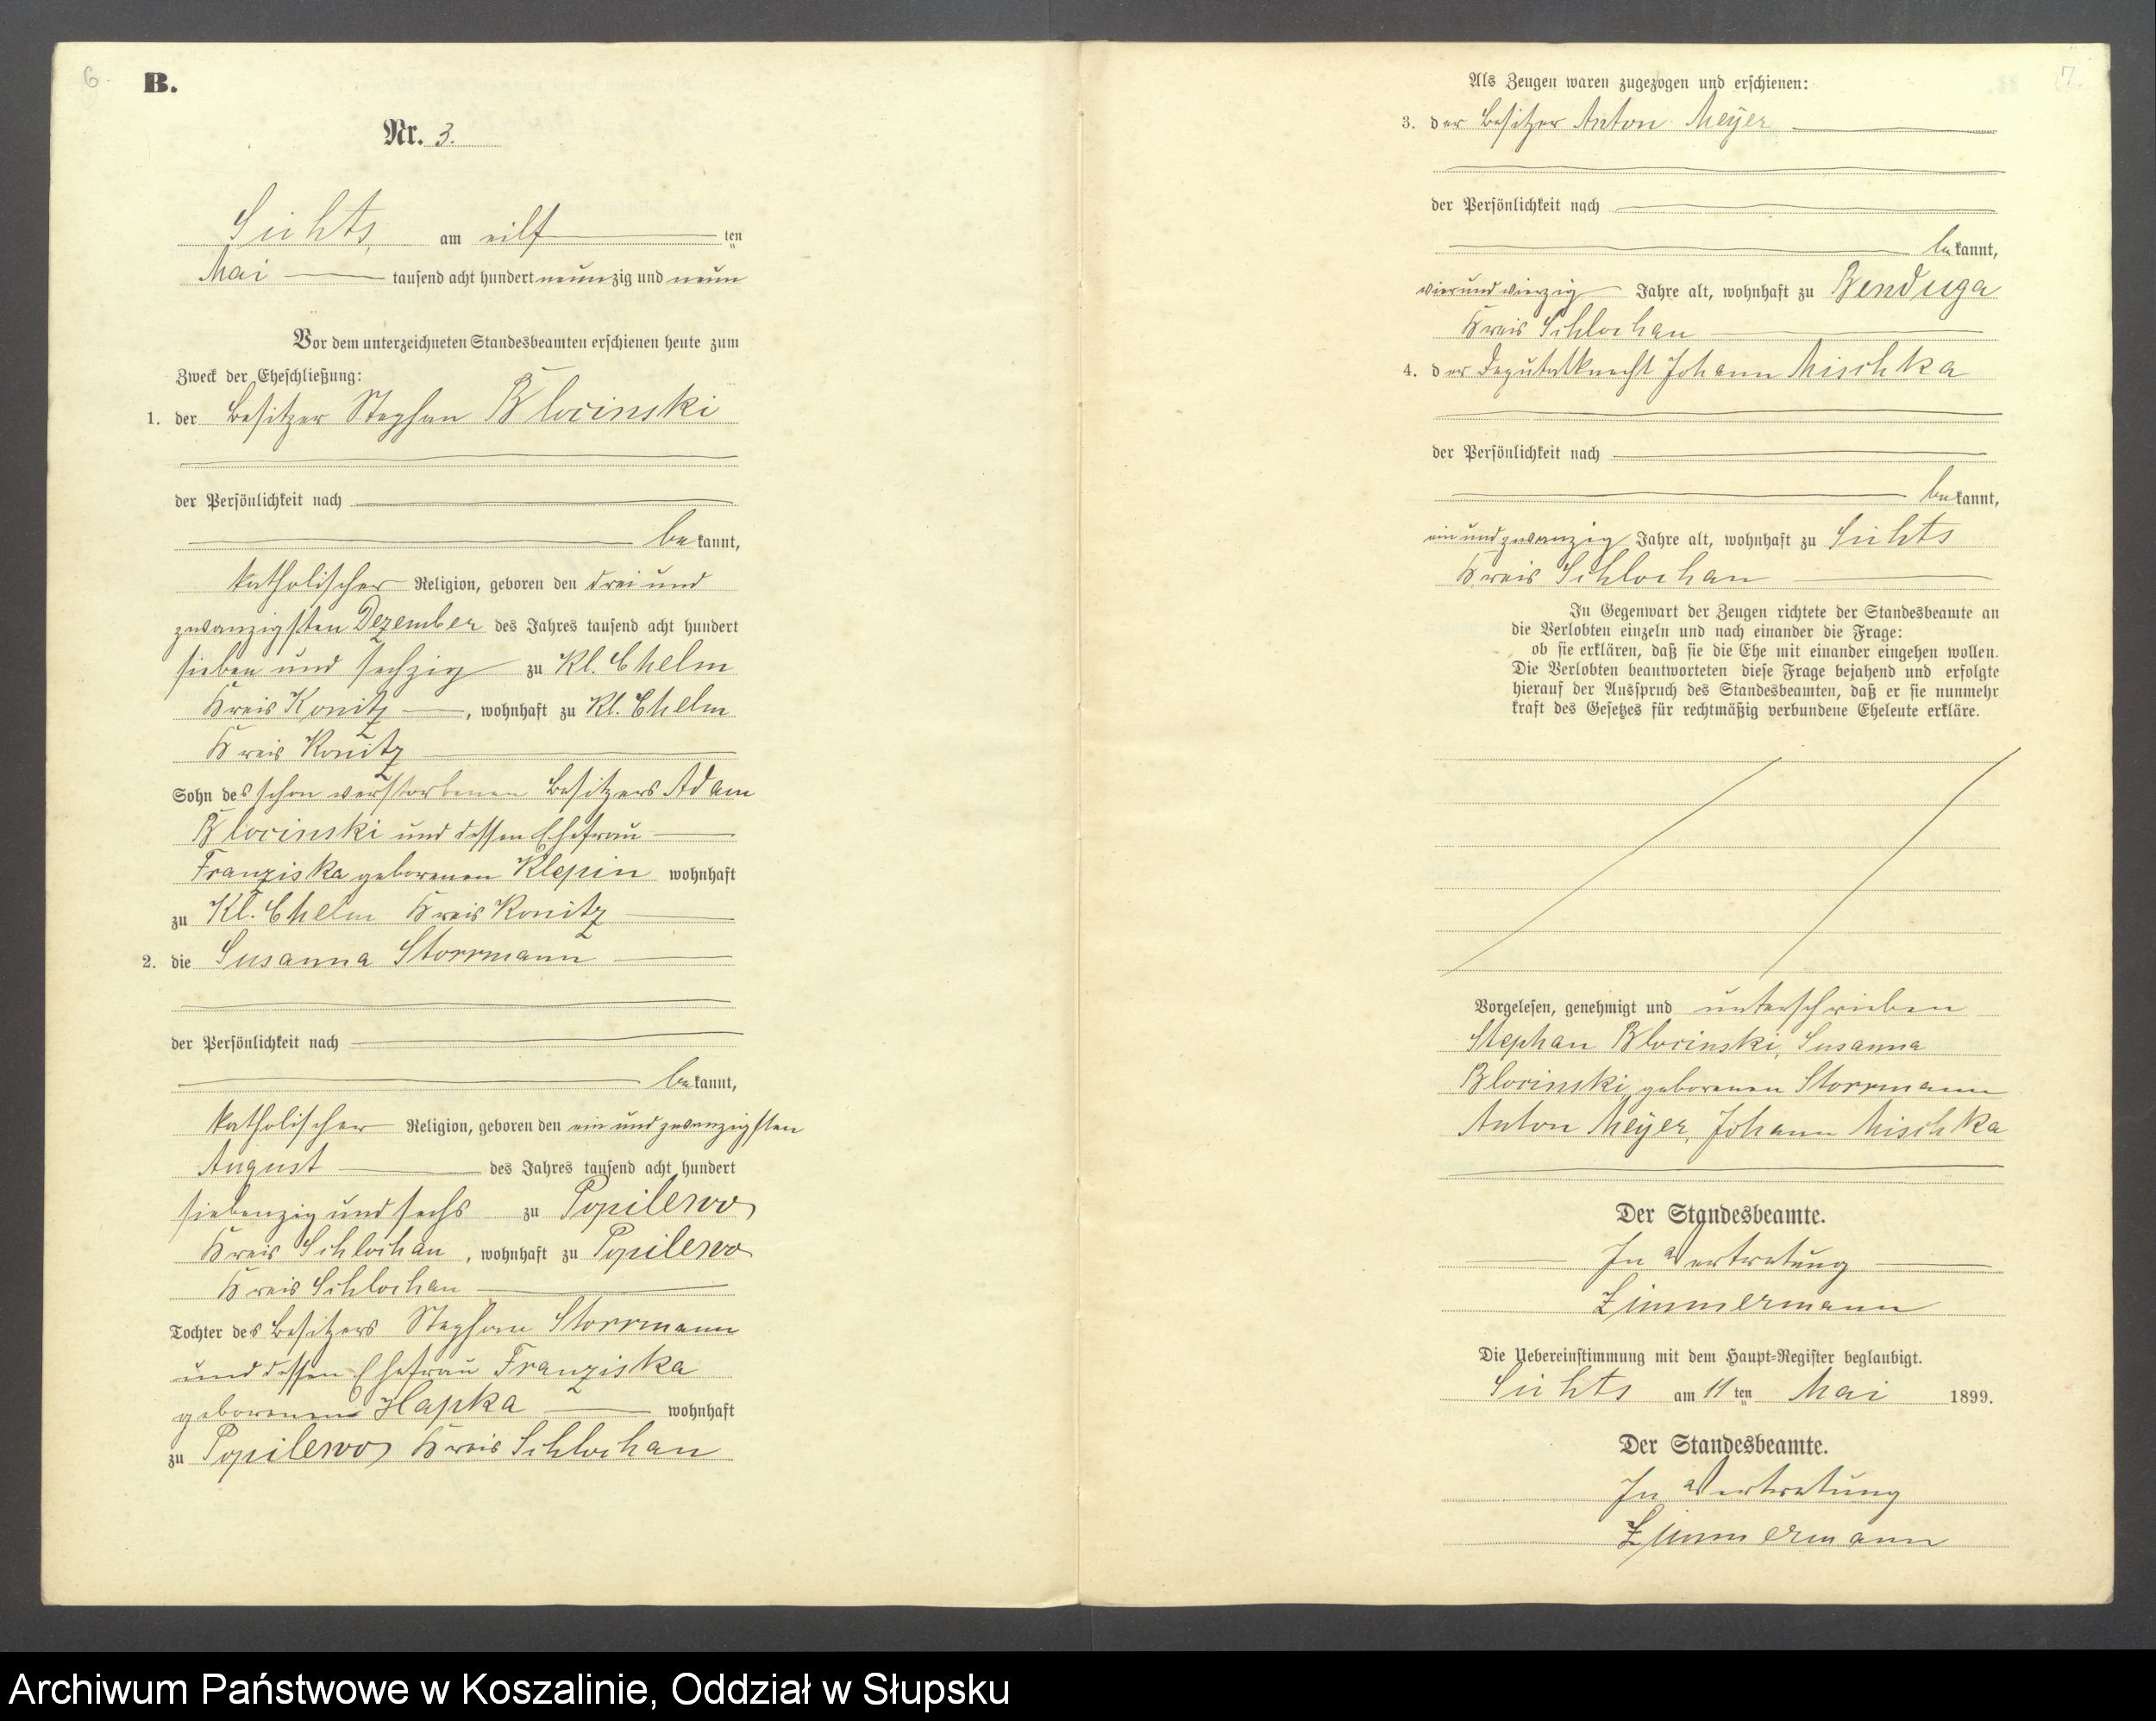 6.
B.
Nr. 3.
Sichts, am eilf ten
Mai tausend acht hundert neunzig und neun
Vor dem unterzeichneten Standesbeamten erschienen heute zum
Zweck der Eheschließung:
1. der Besitzer Stephan Blocinski
der Persönlichkeit nach
bekannt,
katholischer Religion, geboren den drei und
zwanzigsten Dezember des Jahres tausend acht hundert
sieben und sechzig zu Kl. Chelm
Kreis Konitz, wohnhaft zu Kl. Chelm
Kreis Konitz
Sohn des schon verstorbenen Besitzers Adam
Blocinski und dessen Ehefrau
Franziska geborenen Klepin wohnhaft
zu Kl. Chelm Kreis Konitz
2. die Susanna Storrmann
der Persönlichkeit nach
bekannt,
katholischer Religion, geboren den ein und zwanzigsten
August des Jahres tausend acht hundert
siebenzig und sechs zu Popilewo
Kreis Schlochau, wohnhaft zu Popilewo
Kreis Schlochau
Tochter des Besitzers Stephan Storrmann
und dessen Ehefrau Franziska
geborenen Hapka wohnhaft
zu Popilewo Kreis Schlochau
7.
Als Zeugen waren zugezogen und erschienen:
3. der Besitzer Anton Meÿer
der Persönlichkeit nach
bekannt,
vierundvierzig Jahre alt, wohnhaft zu Benduga
Kreis Schlochau
4. der Deputatknecht Johann Mischka
der Persönlichkeit nach
bekannt,
ein und zwanzig Jahre alt, wohnhaft zu Sichts
Kreis Schlochau
In Gegenwart der Zeugen richtete der Standesbeamte an
die Verlobten einzeln und nach einander die Frage:
ob sie erklären, daß sie die Ehe mit einander eingehen wollen.
Die Verlobten beantworteten diese Frage bejahend und erfolgte
hierauf der Ausspruch des Standesbeamten, daß er sie nunmehr
kraft des Gesetzes für rechtmäßig verbundene Eheleute erkläre.
Vorgelesen, genehmigt und unterschrieben
Stephan Blocinski, Susanna
Blocinski, geborenen Storrmann
Anton Meÿer, Johann Mischka
Der Standesbeamte.
In Vertretung
Zimmermann
Die Uebereinstimmung mit dem Haupt-Register beglaubigt.
Sichts am 11 ten Mai 1899.
Der Standesbeamte.
In Vertretung
Zimmermann
Archiwum Państwowe w Koszalinie, Oddział w Słupsku